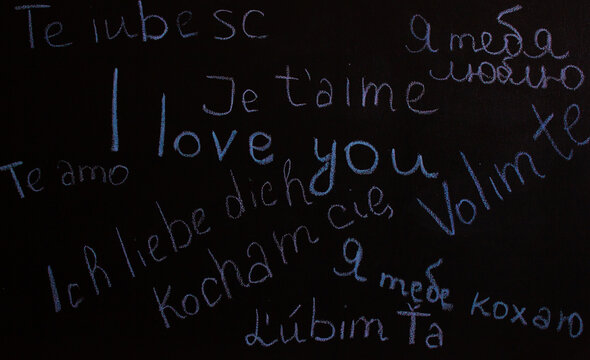 Te iubesc
Я тебя
люблю
Je t'aime
I love you
Volim te
Te amo
Ich liebe dich
Kocham cię
Я тебе кохаю
Ľúbim Ťa